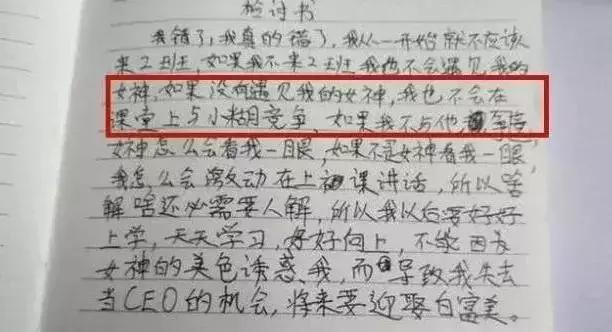 检讨书
我错了,我真的错了,我从一开始就不应该
来2班,如果我不来2班,我也不会遇见我的
女神,如果没有遇见我的女神,我也不会在
课堂上与小胡竞争,如果我不与他争,
女神怎么会看我一眼,如果不是女神看我一眼,
我怎么会激动在上课讲话,所以啥
解啥还必需要人解,所以我以后要好好
上学,天天学习,好好向上,不能因为
女神的美色诱惑我,而导致我失去
当CEO的机会,将来要迎娶白富美。